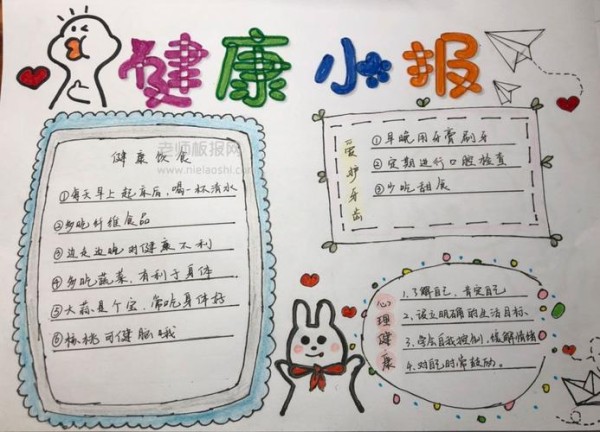 健康小报
健康饮食
①每天早上起床后，喝一杯清水
②多吃纤维食品
③边走边吃对健康不利
④多吃蔬菜，有利于身体
⑤大蒜是个宝，常吃身体好
⑥核桃可健脑哦
老师板报网
www.nielaoshi.com
爱护牙齿
①早晚用牙膏刷牙
②定期进行口腔检查
③少吃甜食
心理健康
1.了解自己，肯定自己
2.设立明确的生活目标.
3.学会自我控制，缓解情绪
4.对自己时常鼓励。